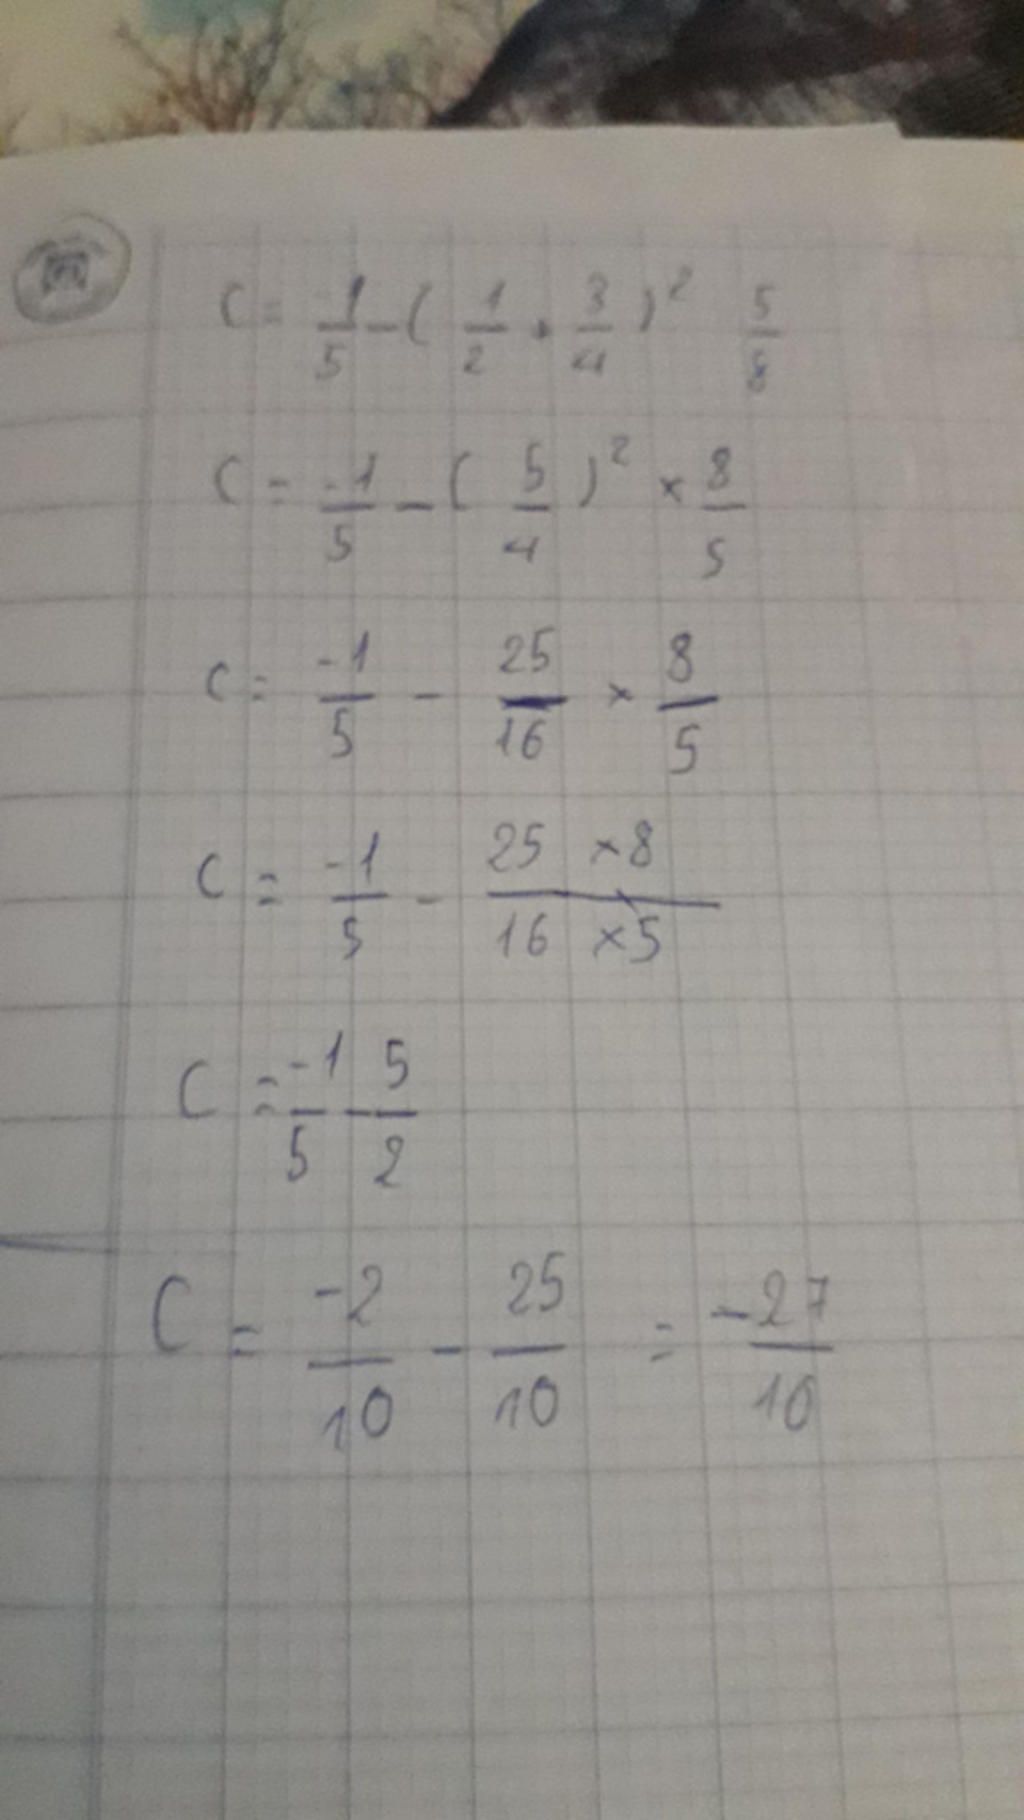 C = -1/5 - ( 1/2 + 3/4 )² 5/8
C = -1/5 - ( 5/4 )² × 8/5
C = -1/5 - 25/16 × 8/5
C = -1/5 - 25 × 8 / 16 × 5
C = -1/5 - 5/2
C = -2/10 - 25/10 = -27/10